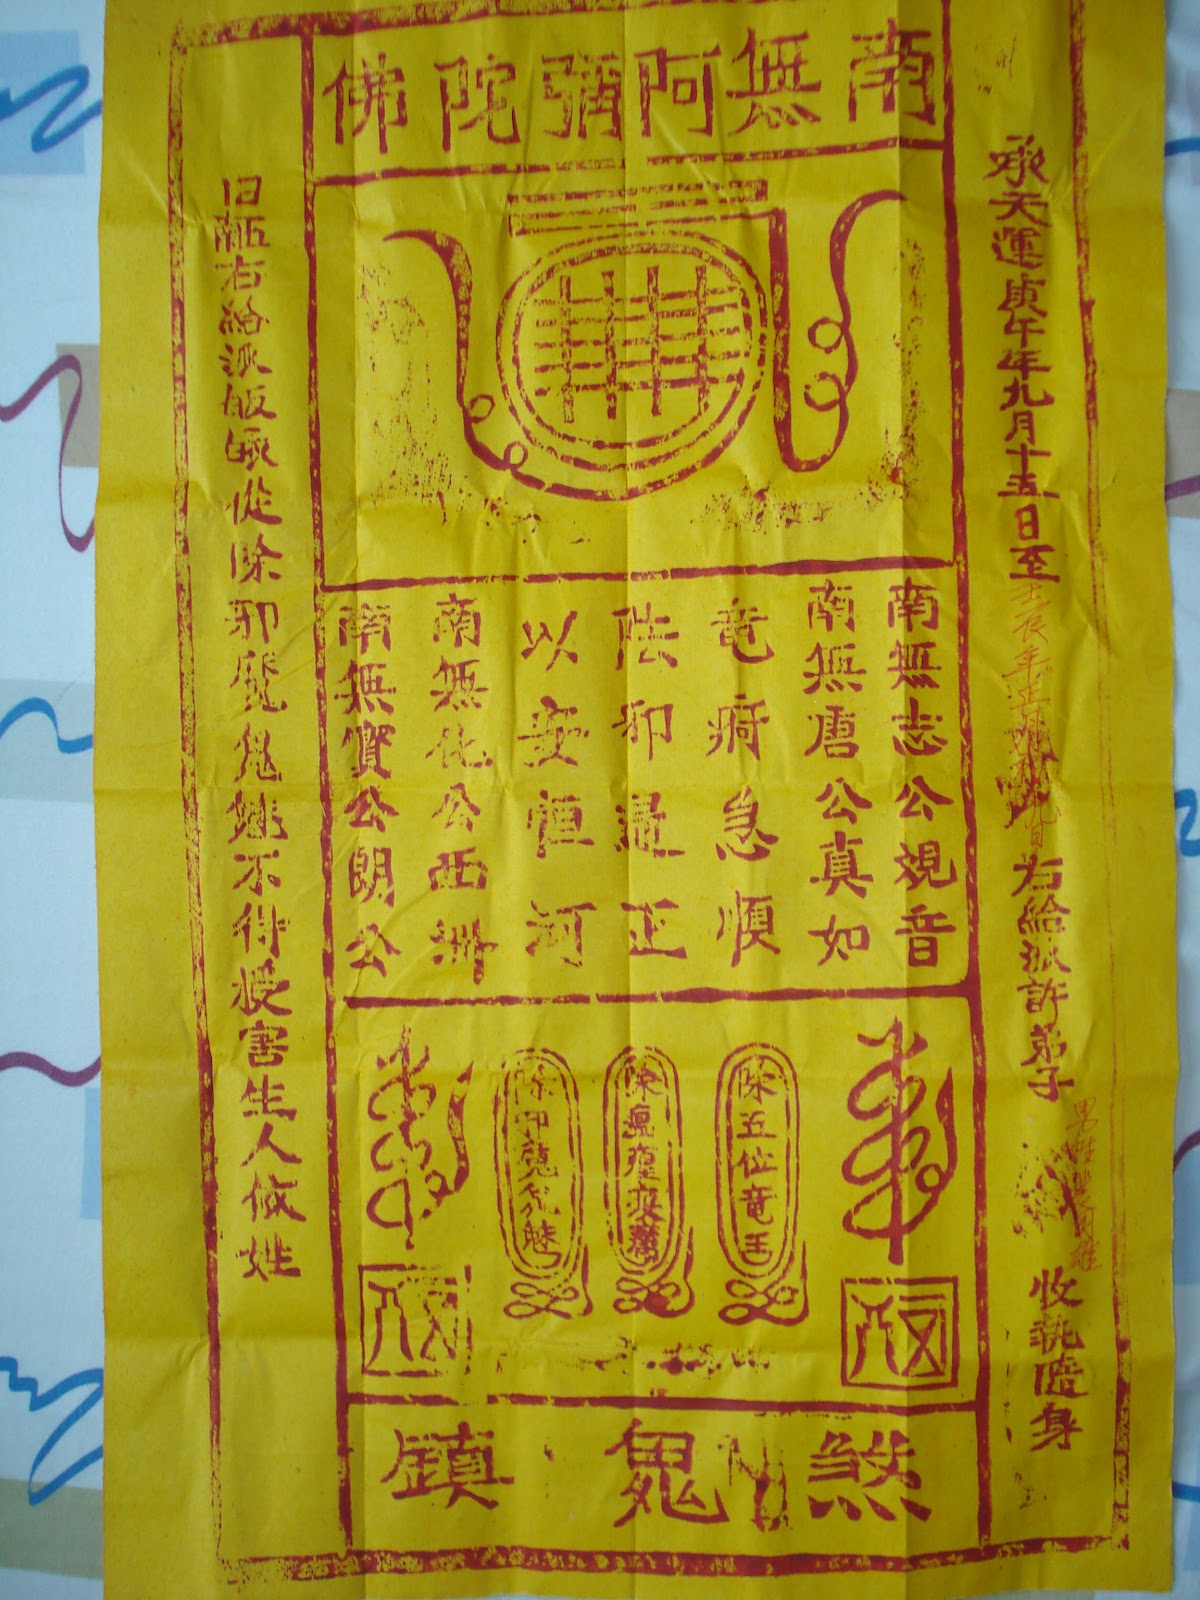 南無阿彌陀佛
承天運庚午年九月十五日至壬辰年正日右給派許弟子收執隨身
南無志公観音
南無唐公真如
竜急順
邪正
以安恒河
南無化公西洲
南無寶公朗公
除五位竜王
除瘟瘴疫
除邪魔鬼魅
煞鬼鎮
旧右給派皈從除邪魔鬼魅不得授害生人攸姓